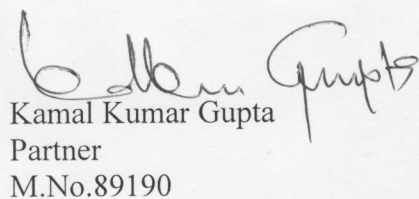 Kamal Kumar Gupta
Partner
M.No.89190